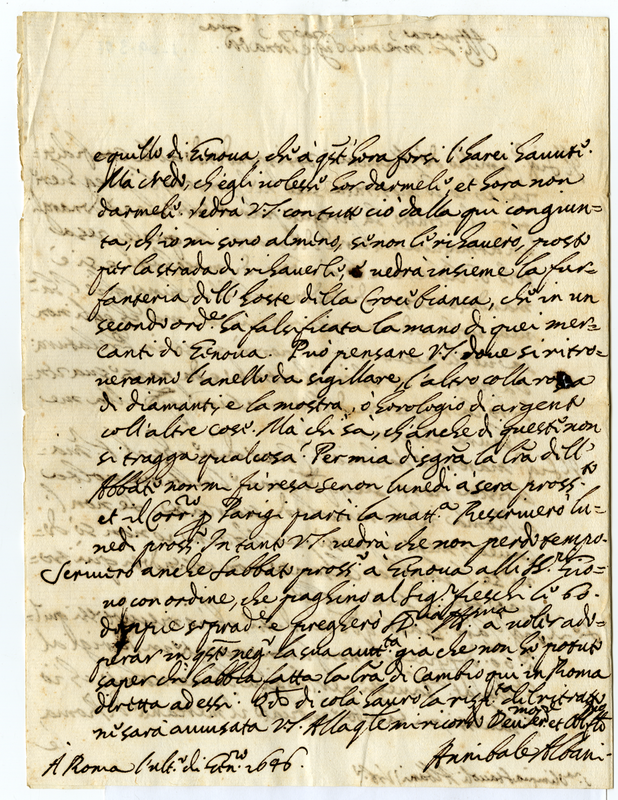 e quello di Genova, che à qst'hora forsi l'harei havuti.
Mà credo, ch'egli volesse hor darmeli, et hora non
darmeli. Vedrà V.S. con tutto ciò dalla qui congiun=
ta, ch'io mi sono almeno, se non li rihaverò, posto
per la strada di rihaverli, e vedrà insieme la fur=
fanteria dell'hoste della Croce bianca, che in un
secondo ord.e hà falsificata la mano di quei mer=
canti di Genova. Può pensare V.S. dove si ritro=
veranno l'anello da sigillare, l'altro colla rosa
di diamanti, e la mostra, ò horologio di argento
coll'altre cose. Mà chi sà, ch'anche di questi non
si tragga qualcosa? Per mia disgra la lra dell'
Abbate non mi fù resa se non lunedì à sera pross.o
et il Corr.ro p Parigi partì la matt.a Rescriverò lu=
nedì pross.o In tanto V.S. vedrà che non perdo tempo.
Scriverò anche sabbato pross.o a Genova alli SS.ri Gio=
vo con ordine, che paghino al Sig.r Fieschi le 60.
doppie soprad.e e pregherò a voler ado=
perar in qsto neg.o la sua autt.tà già che non hò potuto
saper chi s'abbia fatta la lra di cambio qui in Roma
diretta ad essi. Qdo di colà haurò la risp.ta del ritratto
ne sarà avvisata V.S. Alla qle mi ricordo Dev.mo ser.e et Obl.mo
Annibale Albani.
A Roma l'ult.o di Gen.ro 1646.